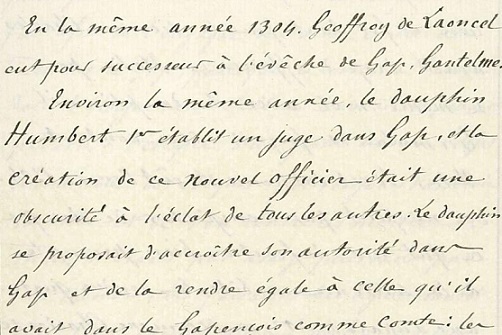 En la même année 1304. Geoffroy de Laoncel
eut pour successeur à l'évêche de Gap, Gantelme.
Environ la même année, le dauphin
Humbert 1er établit un juge dans Gap, et la
création de ce nouvel officier était une
obscurité à l'éclat de tous les autres. Le dauphin
se proposait d'accroître son autorité dans
Gap et de la rendre égale à celle qu'il
avait dans le Gapençois comme Comte: les